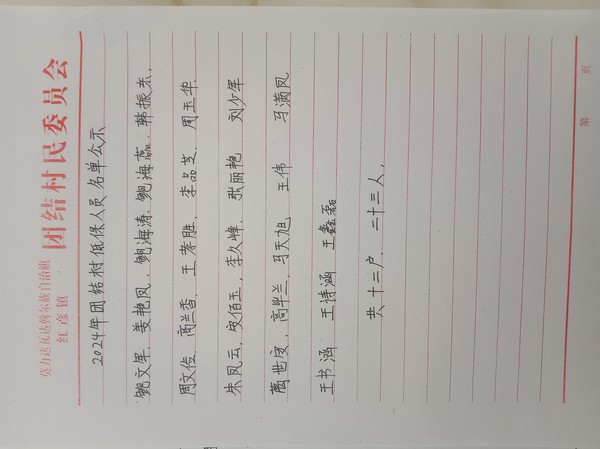 莫力达瓦达斡尔族自治旗
红彦镇
团结村民委员会
2024年团结村低保人员名单公示
鲍文军、姜艳凤、鲍海涛、鲍海燕、韩振东、
周文俭、高兰香、王孝胜、李品芝、周玉华、
朱凤云、安佰玉、李久峰、张丽艳 刘少军
葛世安、高翠兰、马天旭、王伟 马满凤
王书涵 王诗涵 王鑫磊
共十三户、二十三人,
第 页